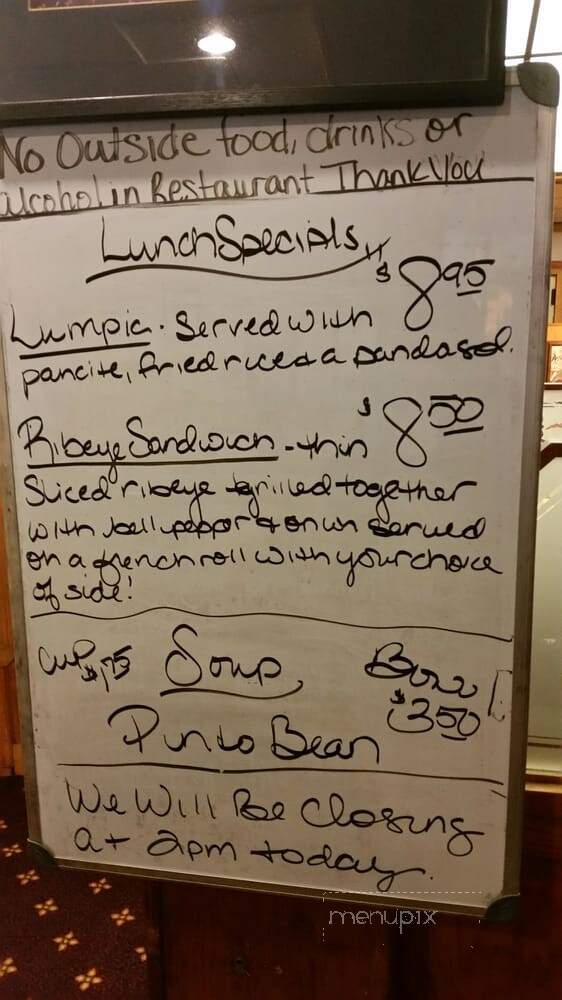 No Outside food, drinks or
alcohol in Restaurant Thank You
Lunch Specials
$8.95
Lumpia. Served with
pancite, fried rice & a pandasol.
$8.50
Ribeye Sandwich - thin
Sliced ribeye grilled together
with bell pepper & onion served
on a french roll with your choice
of side!
Cup $1.75 Soup Bowl $3.50
Pinto Bean
We Will Be Closing
at 2pm today.
menupix